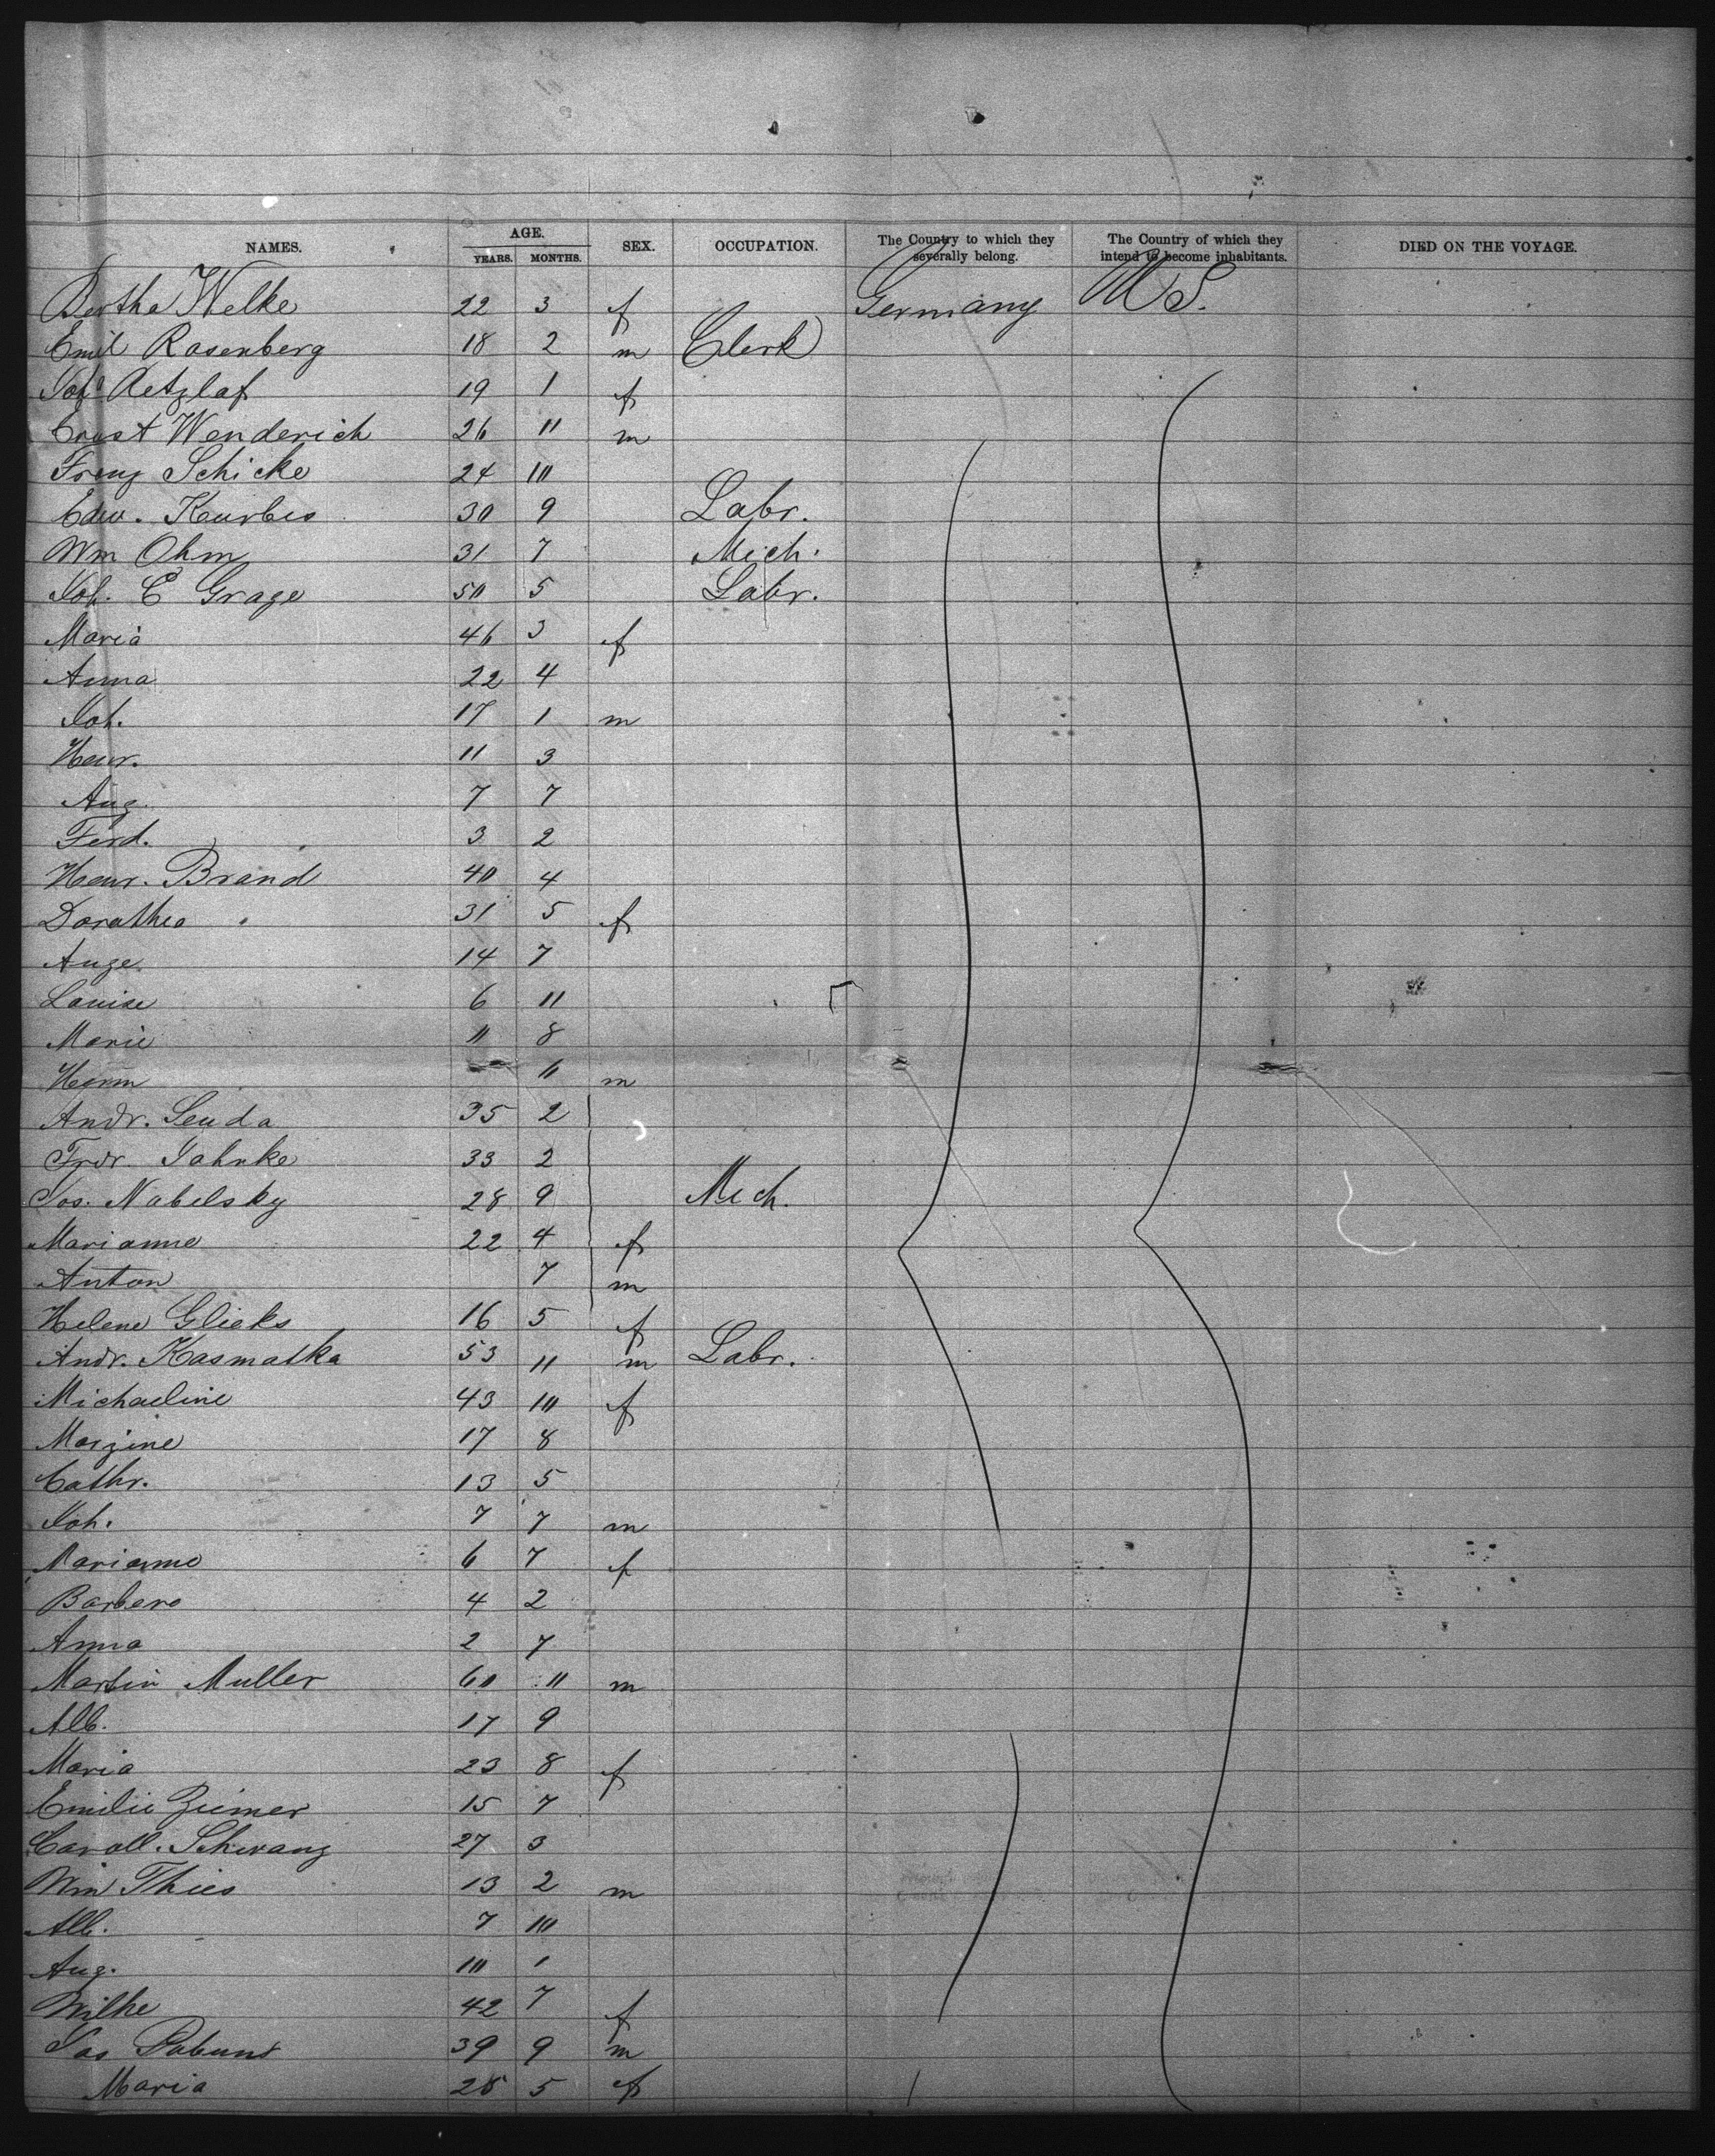 NAMES. AGE. YEARS. MONTHS. SEX. OCCUPATION. The Country to which they severally belong. The Country of which they intend to become inhabitants. DIED ON THE VOYAGE.
Bertha Welke 22 3 f Germany U S.
Emil Rosenberg 18 2 m Clerk
Joh Retzlaf 19 1 f
Ernst Wenderich 26 11 m
Franz Schicke 24 10
Edw. Kurbis 30 9 Labr.
Wm Ohm 31 7 Mech.
Joh. C Grage 50 5 Labr.
Maria 46 3 f
Anna 22 4
Joh. 17 1 m
Henr. 11 3
Aug. 7 7
Ferd. 3 2
Henr. Brand 40 4
Dorathea 31 5 f
Auge. 14 7
Louise 6 11
Marie 11 8
Herm 11 m
Andr. Senda 35 2
Frdr. Jahnke 33 2
Jos. Nabelsky 28 9 Mech.
Marianne 22 4 f
Anton 7 m
Helene Glieks 16 5 f
Andr. Kasmatka 53 11 m Labr.
Michaeline 43 10 f
Marzine 17 8
Cathr. 13 5
Joh. 7 7 m
Marianne 6 7 f
Barbera 4 2
Anna 2 7
Martin Muller 60 11 m
Alb. 17 9
Maria 23 8 f
Emilie Ziemer 15 7
Caroll. Schwanz 27 3
Wm Thies 13 2 m
Alb. 7 10
Aug. 10 1
Wilhe 42 7 f
Jos 39 9 m
Maria 28 5 f